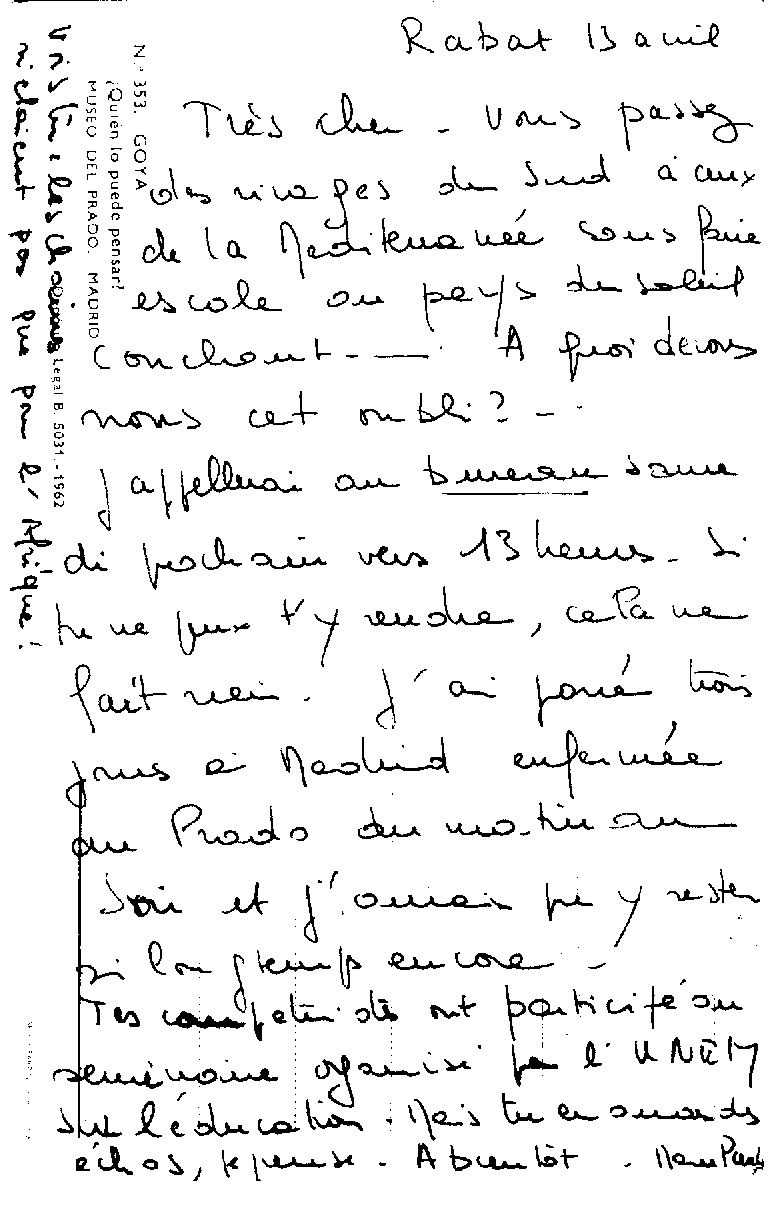 Rabat 13 avril
Très cher - Vous passez
des rivages du Sud à ceux
de la Mediterranée sans faire
escale au pays du soleil
couchant - — . A quoi devons
nous cet oubli? - .
J'appellerai au bureau same
di prochain vers 13 heures - Si
tu ne peux t'y rendre, cela ne
fait rien. J'ai passé trois
jours à Madrid enfermée
au Prado du matin au
soir et j'aurais pu y rester
si longtemps encore -
Tes ont participé au
séminaire organisé par l'UNEM
sur l'éducation. Mais tu en auras des
échos, je pense. A bientôt.
N.º 353. GOYA
¿Quién lo puede pensar?
MUSEO DEL PRADO. MADRID
Legal B. 5031.-1962
Vois tu les
n'étaient pas que pour l'Afrique!